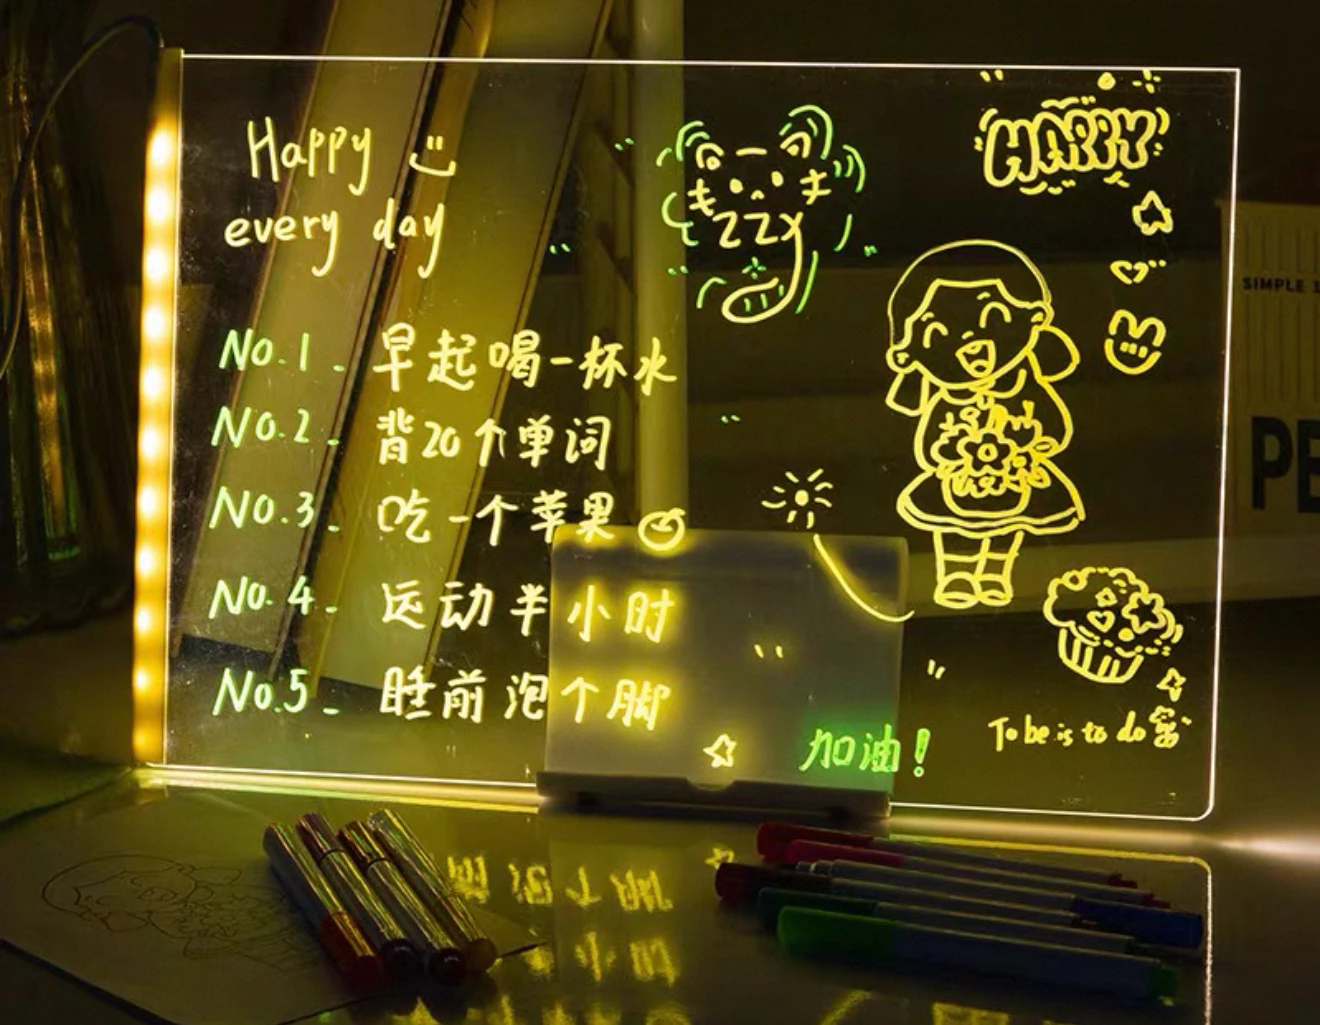 Happy
every day
HAPPY
zzz
No.1. 早起喝一杯水
No.2. 背20个单词
No.3. 吃一个苹果
No.4. 运动半小时
No.5. 睡前泡个脚
加油!
To be is to do
SIMPLE
PE